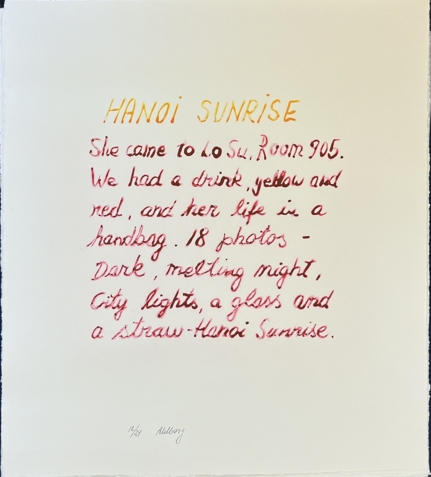 HANOI SUNRISE
She came to Lo Su, Room 905.
We had a drink, yellow and
red, and her life in a
handbag. 18 photos -
Dark, melting night,
City lights, a glass and
a straw-Hanoi Sunrise.